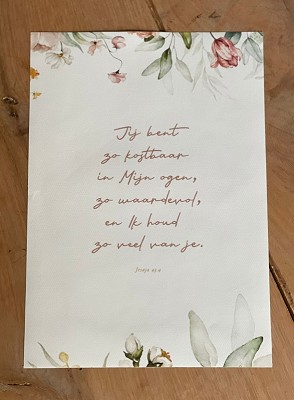 Jij bent
zo kostbaar
in Mijn ogen,
zo waardevol,
en Ik houd
zo veel van je.
Jesaja 43:4